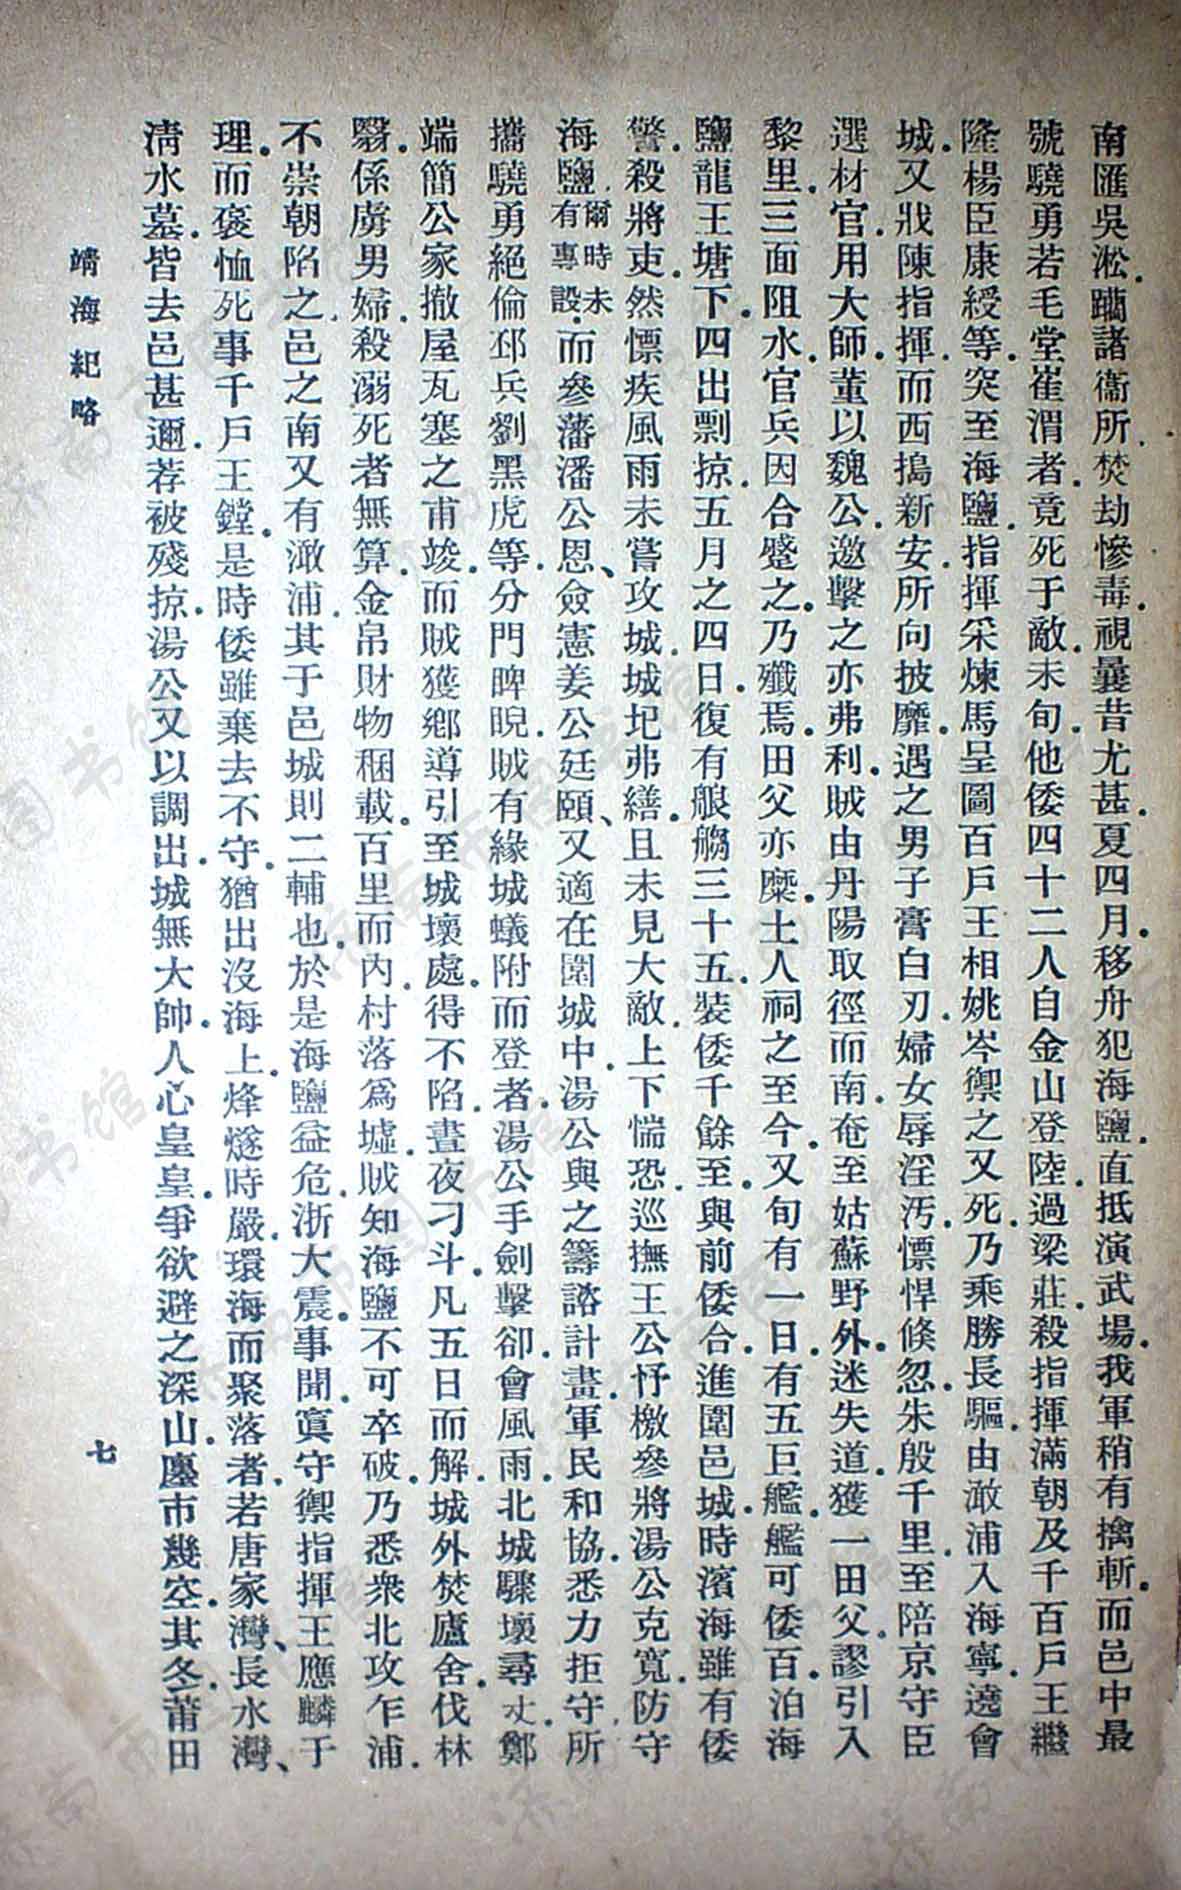 南匯吳淞躪諸衞所焚劫慘毒視曩昔尤甚夏四月移舟犯海鹽直抵演武場我軍稍有擒斬而邑中最
號驍勇若毛堂崔渭者竟死于敵未旬他倭四十二人自金山登陸過梁莊殺指揮滿朝及千百戶王繼
隆楊臣康綬等突至海鹽指揮采煉馬呈圖百戶王相姚岑禦之又死乃乘勝長驅由澉浦入海寧遶會
城又戕陳指揮而西搗新安所向披靡遇之男子膏白刃婦女辱淫汚慓悍倏忽朱殷千里至陪京守臣
選材官用大師董以魏公邀擊之亦弗利賊由丹陽取徑而南奄至姑蘇野外迷失道獲一田父謬引入
黎里三面阻水官兵因合蹙之乃殲焉田父亦糜土人祠之至今又旬有一日有五巨艦艦可倭百泊海
鹽龍王塘下四出剽掠五月之四日復有艆䑽三十五裝倭千餘至與前倭合進圍邑城時濱海雖有倭
警殺將吏然慓疾風雨未嘗攻城城圮弗繕且未見大敵上下惴恐巡撫王公忬檄參將湯公克寬防守
海鹽爾時未有專設而參藩潘公恩、僉憲姜公廷頤、又適在圍城中湯公與之籌諮計畫軍民和協悉力拒守所
攜驍勇絕倫邳兵劉黑虎等分門睥睨賊有緣城蟻附而登者湯公手劍擊卻會風雨北城驟壞尋丈鄭
端簡公家撤屋瓦塞之甫竣而賊獲鄉導引至城壞處得不陷晝夜刁斗凡五日而解城外焚廬舍伐林
翳係虜男婦殺溺死者無算金帛財物稇載百里而內村落爲墟賊知海鹽不可卒破乃悉衆北攻乍浦
不崇朝陷之邑之南又有澉浦其于邑城則二輔也於是海鹽益危浙大震事聞寘守禦指揮王應麟于
理而褒恤死事千戶王鏜是時倭雖棄去不守猶出沒海上烽燧時嚴環海而聚落者若唐家灣、長水灣、
淸水墓皆去邑甚邇荐被殘掠湯公又以調出城無大帥人心皇皇爭欲避之深山廛市幾空其冬莆田
靖海紀略
七